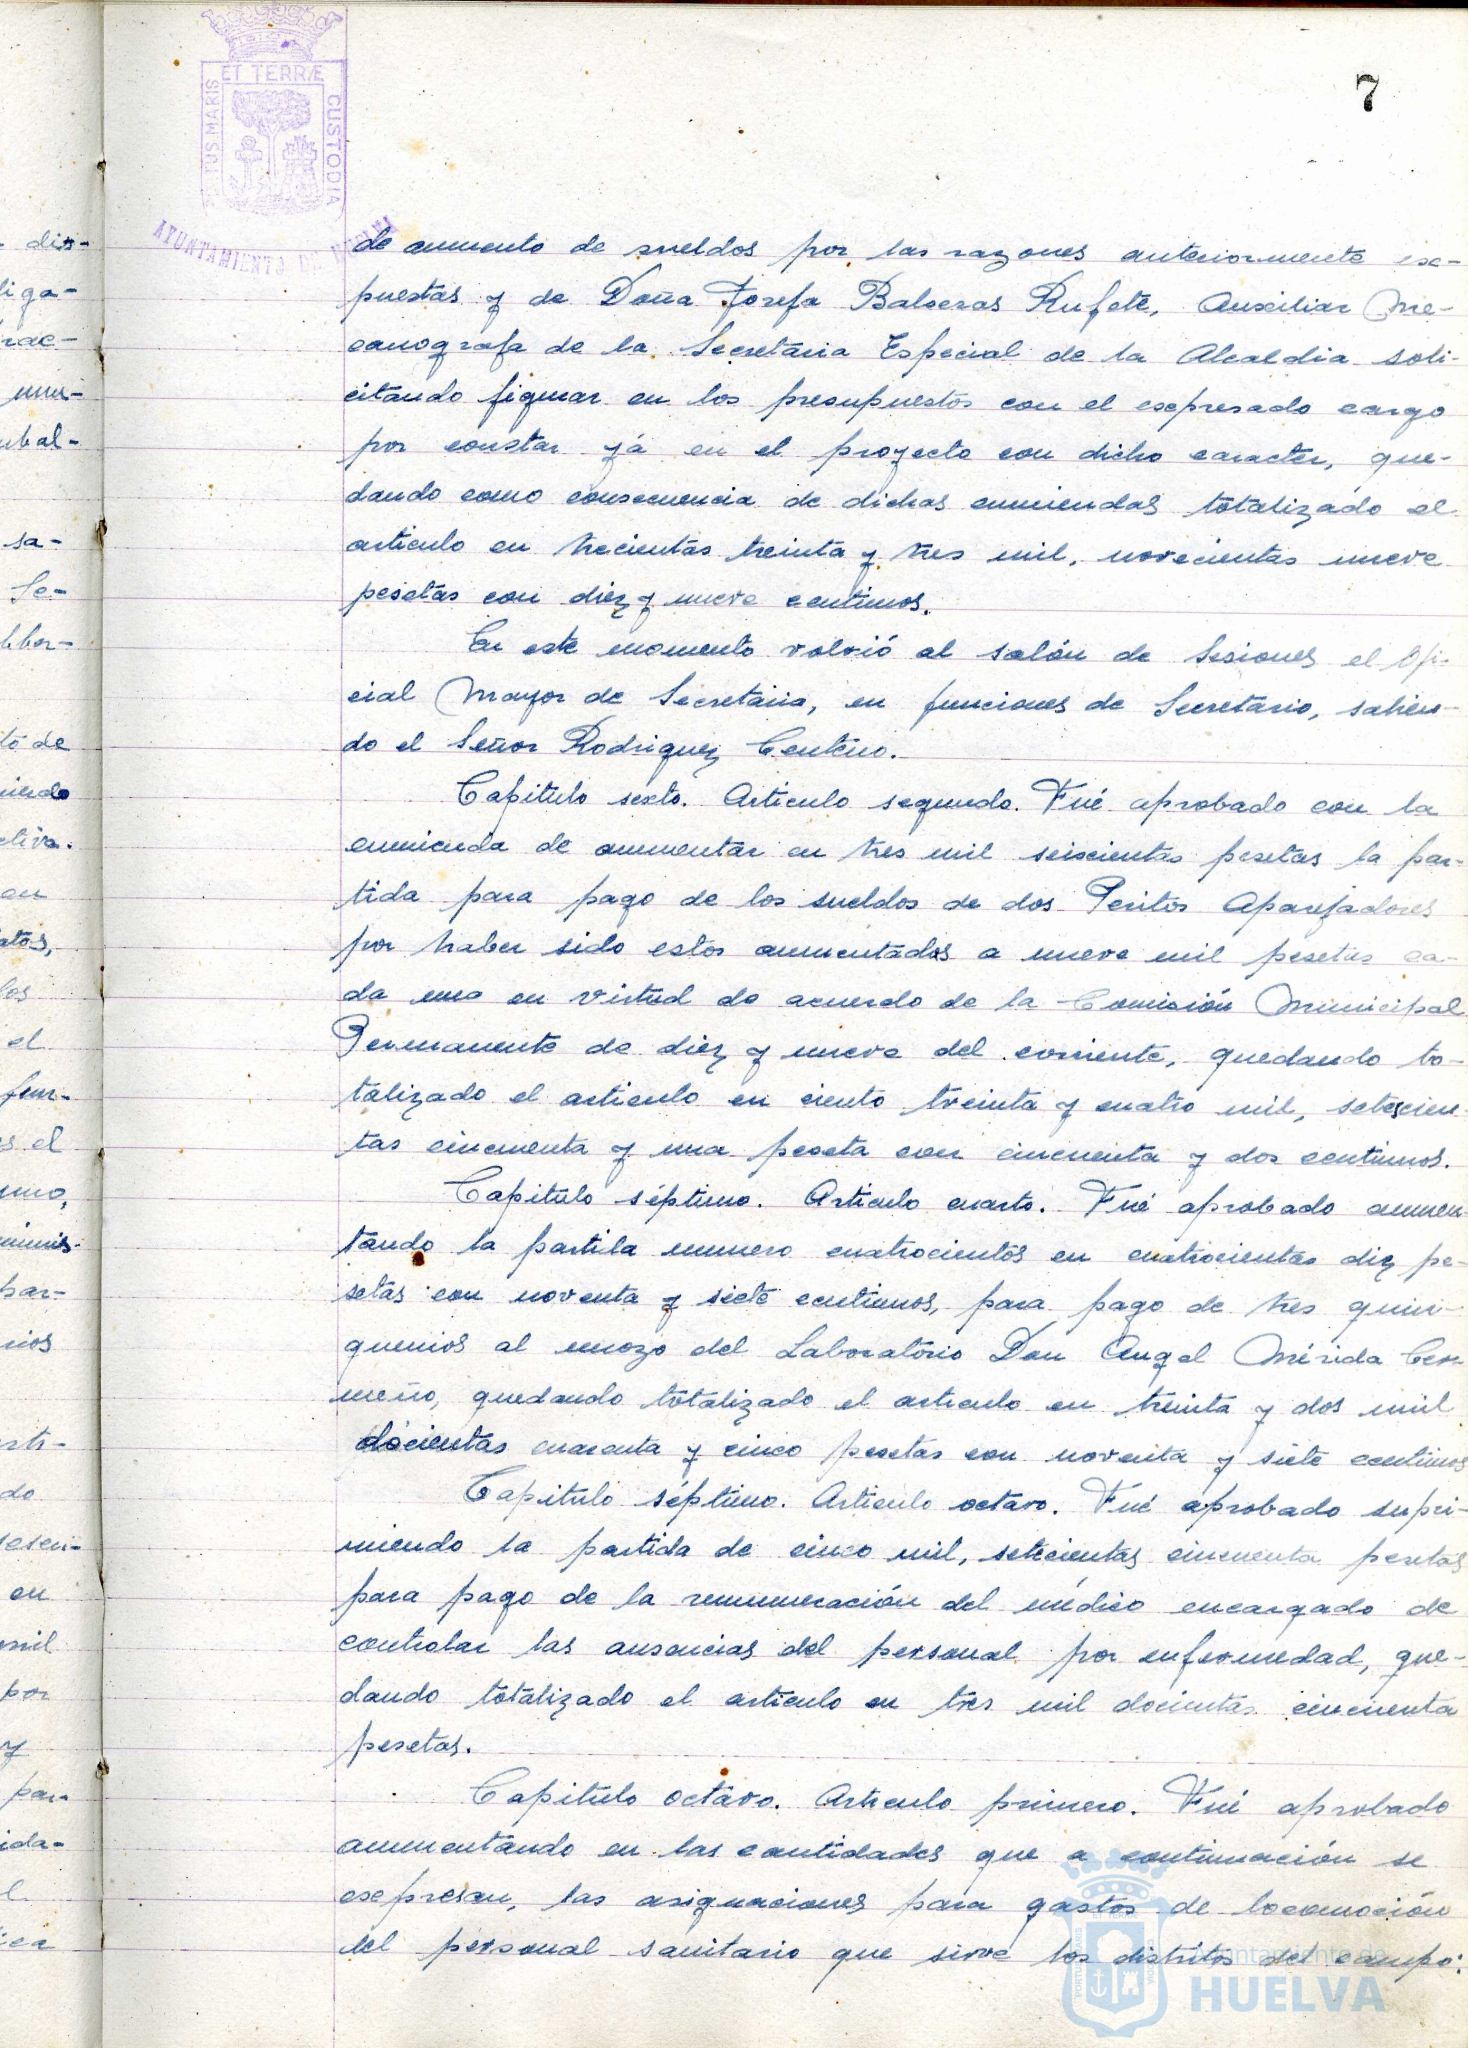 7
ET TERRÆ
TUS MARIS
CUSTODIA
AYUNTAMIENTO DE HUELVA
de aumento de sueldos por las razones anteriormente ex-
puestas y de Doña Josefa Balseras Rufete, Auxiliar Me-
canografa de la Secretaria Especial de la Alcaldia soli-
citando figurar en los presupuestos con el expresado cargo
por constar yá en el proyecto con dicho caracter, que-
dando como consecuencia de dichas enmiendas totalizado el
articulo en trecientas treinta y tres mil, novecientas nueve
pesetas con diez y nueve centimos.
En este momento volvió al salón de Sesiones el Ofi-
cial Mayor de Secretaria, en funciones de Secretario, salien-
do el Señor Rodriguez Centeno.
Capitulo sexto. Articulo segundo. Fué aprobado con la
enmienda de aumentar en tres mil seiscientas pesetas la par-
tida para pago de los sueldos de dos Peritos Aparejadores
por haber sido estos aumentados a nueve mil pesetas ca-
da uno en virtud de acuerdo de la Comisión Municipal
Permanente de diez y nueve del corriente, quedando to-
talizado el articulo en ciento treinta y cuatro mil, setescien-
tas cincuenta y una peseta con cincuenta y dos centimos.
Capitulo séptimo. Articulo cuarto. Fué aprobado aumen-
tando la partida numero cuatrocientos en cuatrocientas diez pe-
setas con noventa y siete centimos, para pago de tres quin-
quenios al mozo del Laboratorio Don Angel Mérida Cer-
meño, quedando totalizado el articulo en treinta y dos mil
docientas cuarenta y cinco pesetas con noventa y siete centimos
Capitulo séptimo. Articulo octavo. Fué aprobado supri-
miendo la partida de cinco mil, setecientas cincuenta pesetas
para pago de la remuneración del médico encargado de
controlar las ausencias del personal por enfermedad, que-
dando totalizado el articulo en tres mil docientas cincuenta
pesetas.
Capitulo octavo. Articulo primero. Fué aprobado
aumentando en las cantidades que a continuación se
expresan, las asignaciones para gastos de locomoción
del personal sanitario que sirve los distritos del campo:
Ayuntamiento de
HUELVA